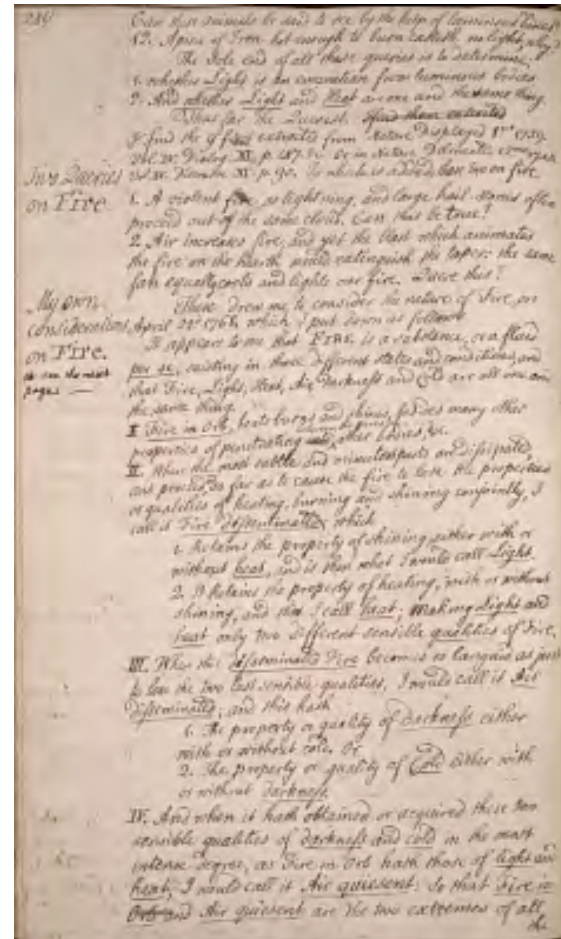 Can these animals be said to see by the help of luminous bodies
12. A piece of Iron hot enough to burn casteth no light, why?
The sole end of all these queries is to determine
1. whether Light is an emanation from luminous bodies
2. And whether Light and Heat are one and the same thing.
Thus far the Querist.
I find the first extracted from Nature Displayed 1739
Vol. IV. Dialog. XI. p. 187. or in Nature Delineated
Vol. IV. p. 90. To which is added these two on fire
Two Queries
on Fire
1. A violent fire, as lightning, and large hail-stones often
proceed out of the same cloud. Can this be true?
2. Air increases fire, and yet the blast which animates
the fire on the hearth would extinguish the taper: the same
fan equally cools and lights our fire. Quere this?
My own
considerations
on Fire.
see the next
page
These drew me to consider the nature of Fire, on
April 22d 1768, which I put down as follows
It appears to me that FIRE is a substance, or a fluid
per se, existing in three different states and conditions, and
that Fire, Light, Heat, Air, Darkness and Cold are all one and
the same thing.
I Fire in Orb, heats burns and shines, besides many other
properties of penetrating other bodies, &c.
II. When the most subtle and minutest parts are dissipated,
and proceed so far as to cause the fire to lose the properties
or qualities of heating, burning and shining conjointly, I
call it Fire disseminated, which
1. Retains the property of shining either with or
without heat, and is then what I would call Light
2. It retains the property of heating, with or without
shining, and then I call heat; making Light and
heat only two different sensible qualities of Fire.
III. When the disseminated Fire becomes so languid as just
to lose the two last sensible qualities, I would call it Air
disseminated; and this hath
1. The property or quality of darkness either
with or without cold. Or
2. The property or quality of Cold either with
or without darkness.
IV. And when it hath obtained or acquired these two
sensible qualities of darkness and cold in the most
intense degree, as Fire in Orb hath those of light and
heat; I would call it Air quiesent: So that Fire in
Orb and Air quiesent are the two extremes of all
the